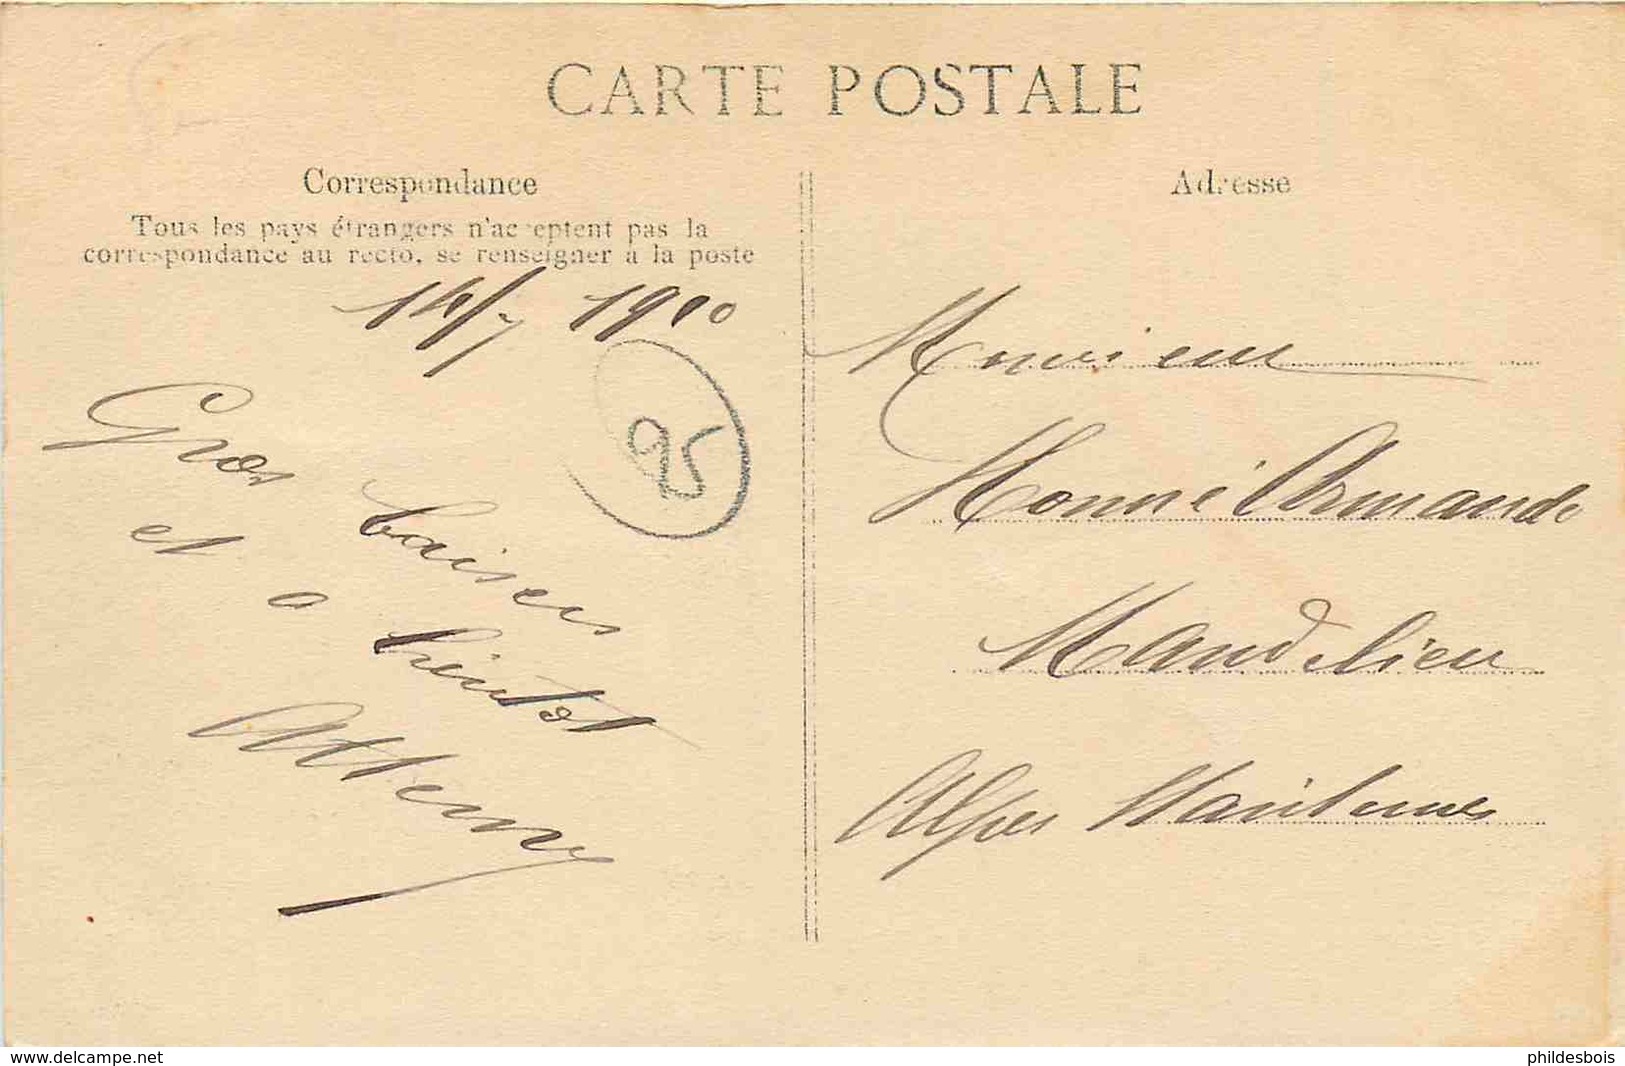 CARTE POSTALE
Correspondance
Tous les pays étrangers n'acceptent pas la
correspondance au recto, se renseigner à la poste
14/7 1910
Gros baisers
et a bientot
95
Adresse
Monsieur
Honnoré Armande
Mandelieu
Alpes Maritimes
www.delcampe.net
phildesbois